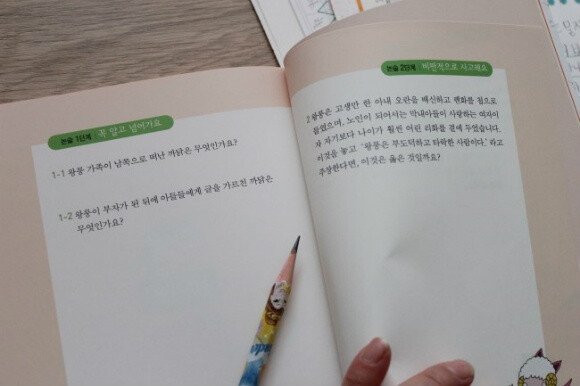 논술 1단계 꼭 알고 넘어가요
1-1 왕룽 가족이 남쪽으로 떠난 까닭은 무엇인가요?
1-2 왕룽이 부자가 된 뒤에 아들들에게 글을 가르친 까닭은
무엇인가요?
논술 2단계 비판적으로 사고해요
2 왕룽은 고생만 한 아내 오란을 배신하고 렌화를 첩으로
들였으며, 노인이 되어서는 막내아들이 사랑하는 여자이
자 자기보다 나이가 훨씬 어린 리화를 곁에 두었습니다.
이것을 놓고 '왕룽은 부도덕하고 타락한 사람이다.' 하고
주장한다면, 이것은 옳은 것일까요?